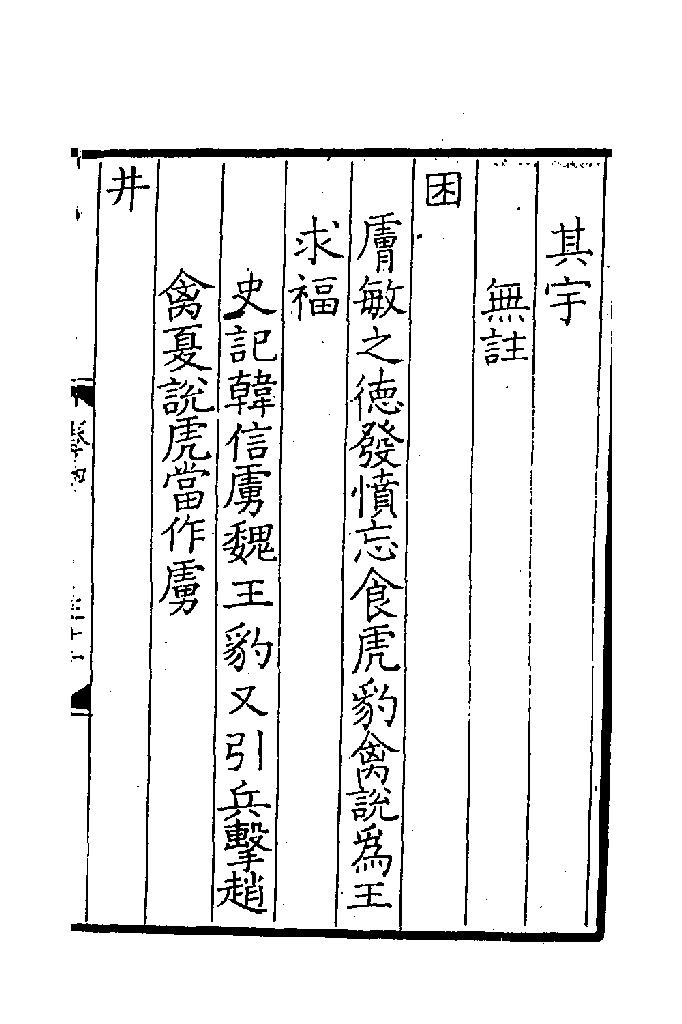 其宇
無註
困
膚敏之徳發憤忘食虎豹禽說爲王
求福
史記韓信虜魏王豹又引兵擊趙
禽夏說虎當作虜
井